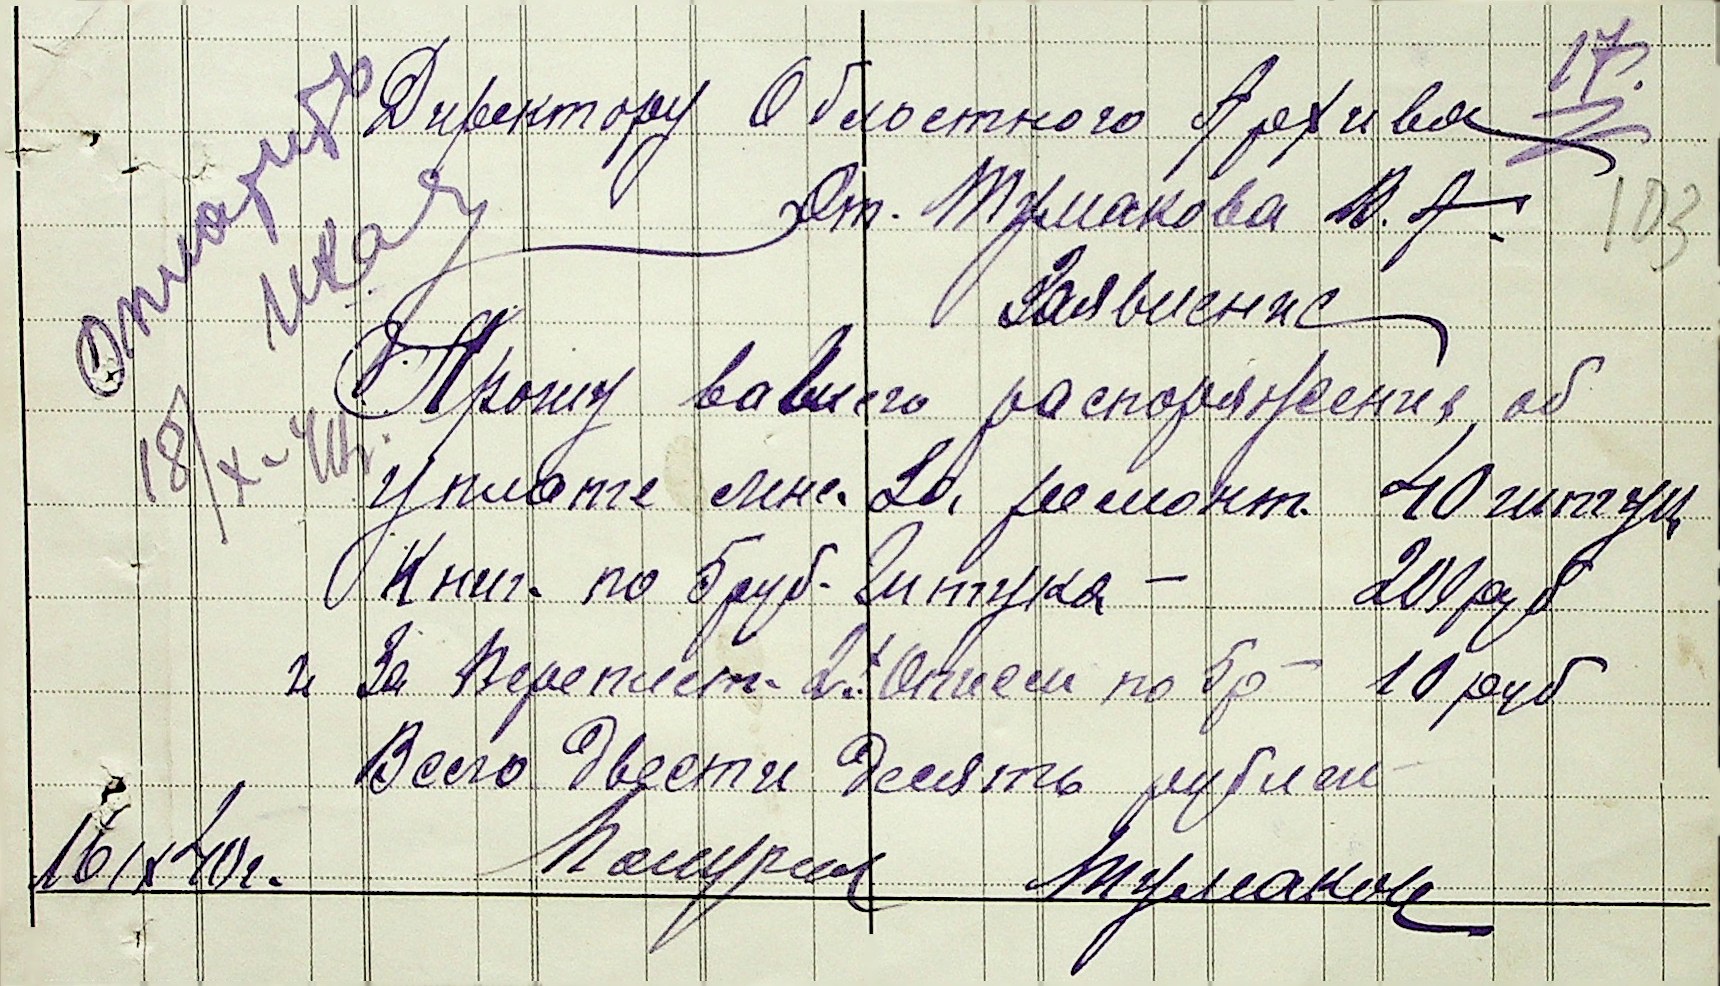 17.
Директору Областного Архива
От. Тумакова В. А.
103
Заявление
Оплатить
18/X-40г.
Прошу вашего распоряжения об
уплате мне. За ремонт. 40 штук
Книг. по 5 руб. Штука — 200 руб
и За Переплет. 2х Описей по 5р — 10 руб
Всего Двести Десять рублей
16/X 40г. Тумаков